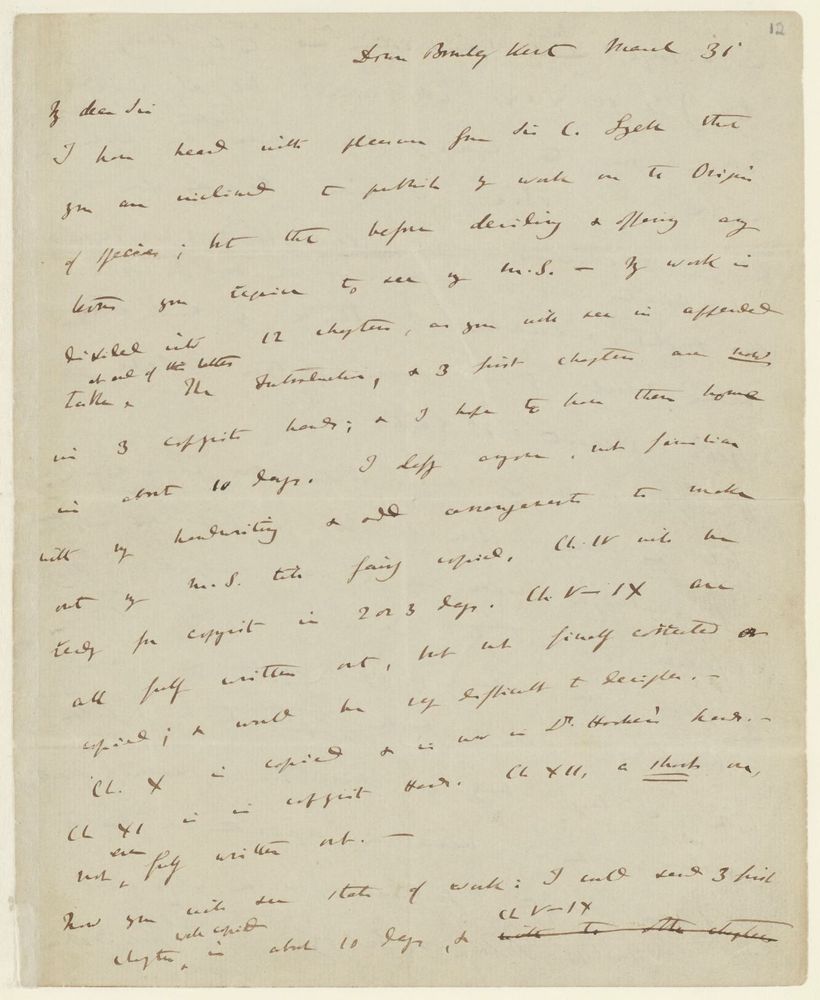 12
Down Bromley Kent March 31
My dear Sir
I have heard with pleasure from Sir C. Lyell that
you are inclined to publish my work on the Origin
of species; but that before deciding & offering any
terms you require to see my M.S. — My work is
divided into 12 chapters, as you will see in appended
at end of this letter
table. The Introduction, & 3 first chapters are now
in 3 copyists hands; & I hope to have them home
in about 10 days. I defy anyone, not familiar
with my handwriting & odd arrangements to make
out my M.S. till fairly copied. Ch. IV will be
ready for copyist in 2 or 3 days. Ch. V—IX are
all fully written out, but not finally corrected or
copied; & would be very difficult to decipher. —
Ch. X is copied & is now in Dr. Hooker's hands. —
Ch XI is in copyist Hands. Ch XII, a short one,
even
not, fully written out. —
Now you will see state of work: I could send 3 first
Ch V—IX
well copied
chapters, in about 10 days, & with the other chapters